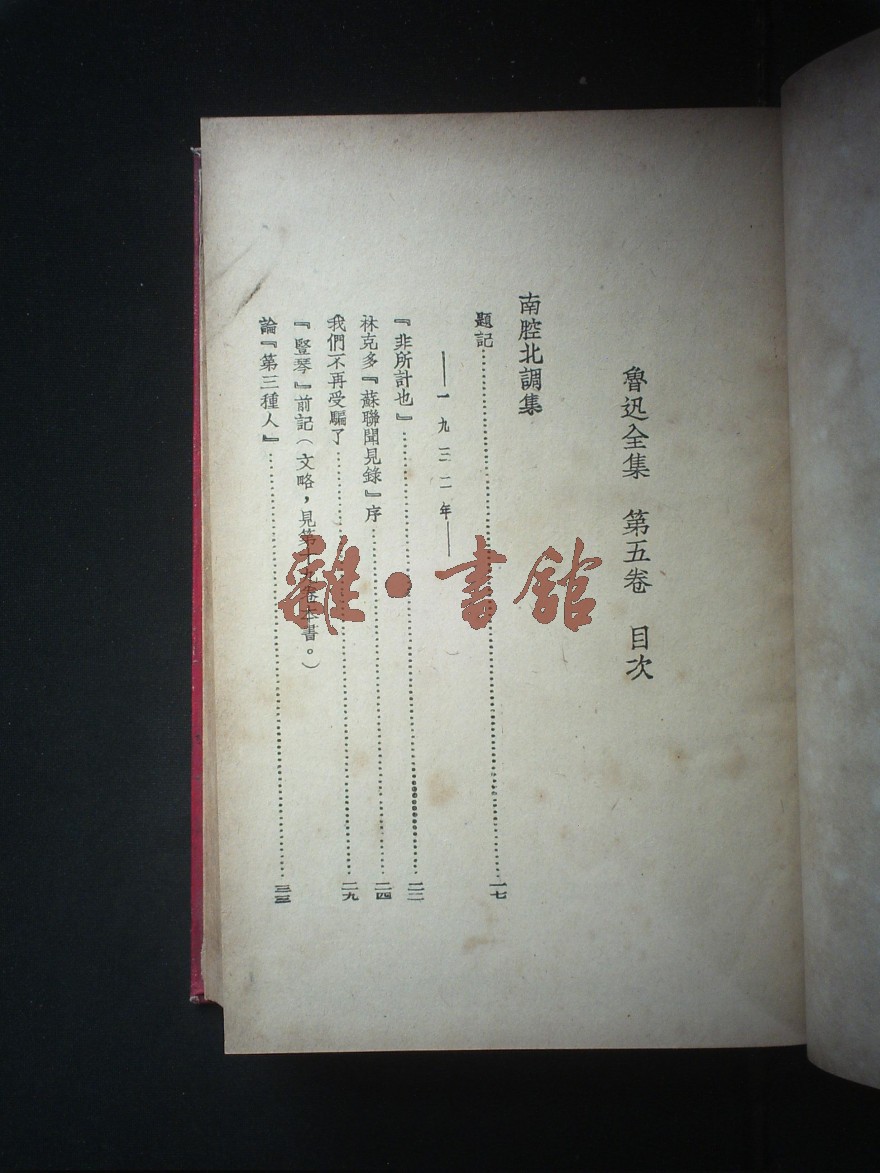 魯迅全集 第五卷 目次
南腔北調集
題記……一七
——一九三二年——
『非所計也』……二二
林克多『蘇聯聞見錄』序……二四
我們不再受騙了……二九
『豎琴』前記（文略，見第十九卷本書。）
論『第三種人』……三三
雜·書館